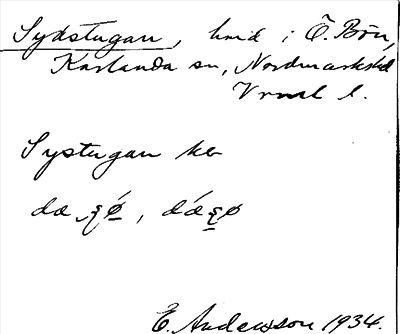 Sydstugan, hmd i Ö. Bön,
Karlanda sn, Nordmarkshd
Vrml l.
Systugan ke
E. Andersson 1934.